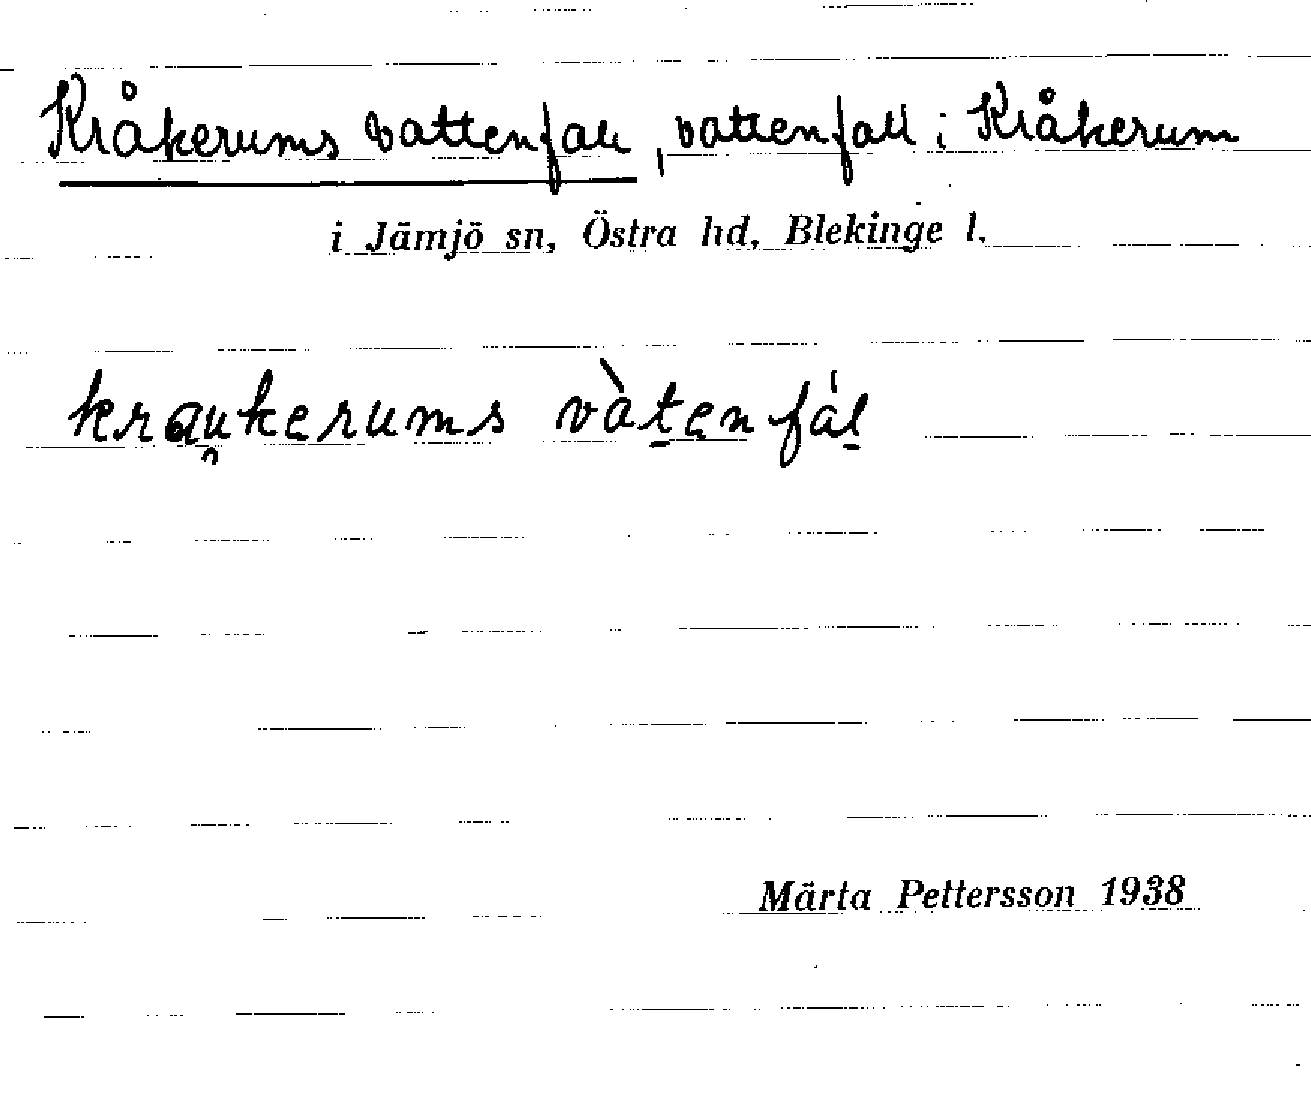 Kråkerums vattenfall, vattenfall i Kråkerum
i Jämjö sn, Östra hd, Blekinge l.
krau̯kerums vàt̲enfál̲
Märta Pettersson 1938